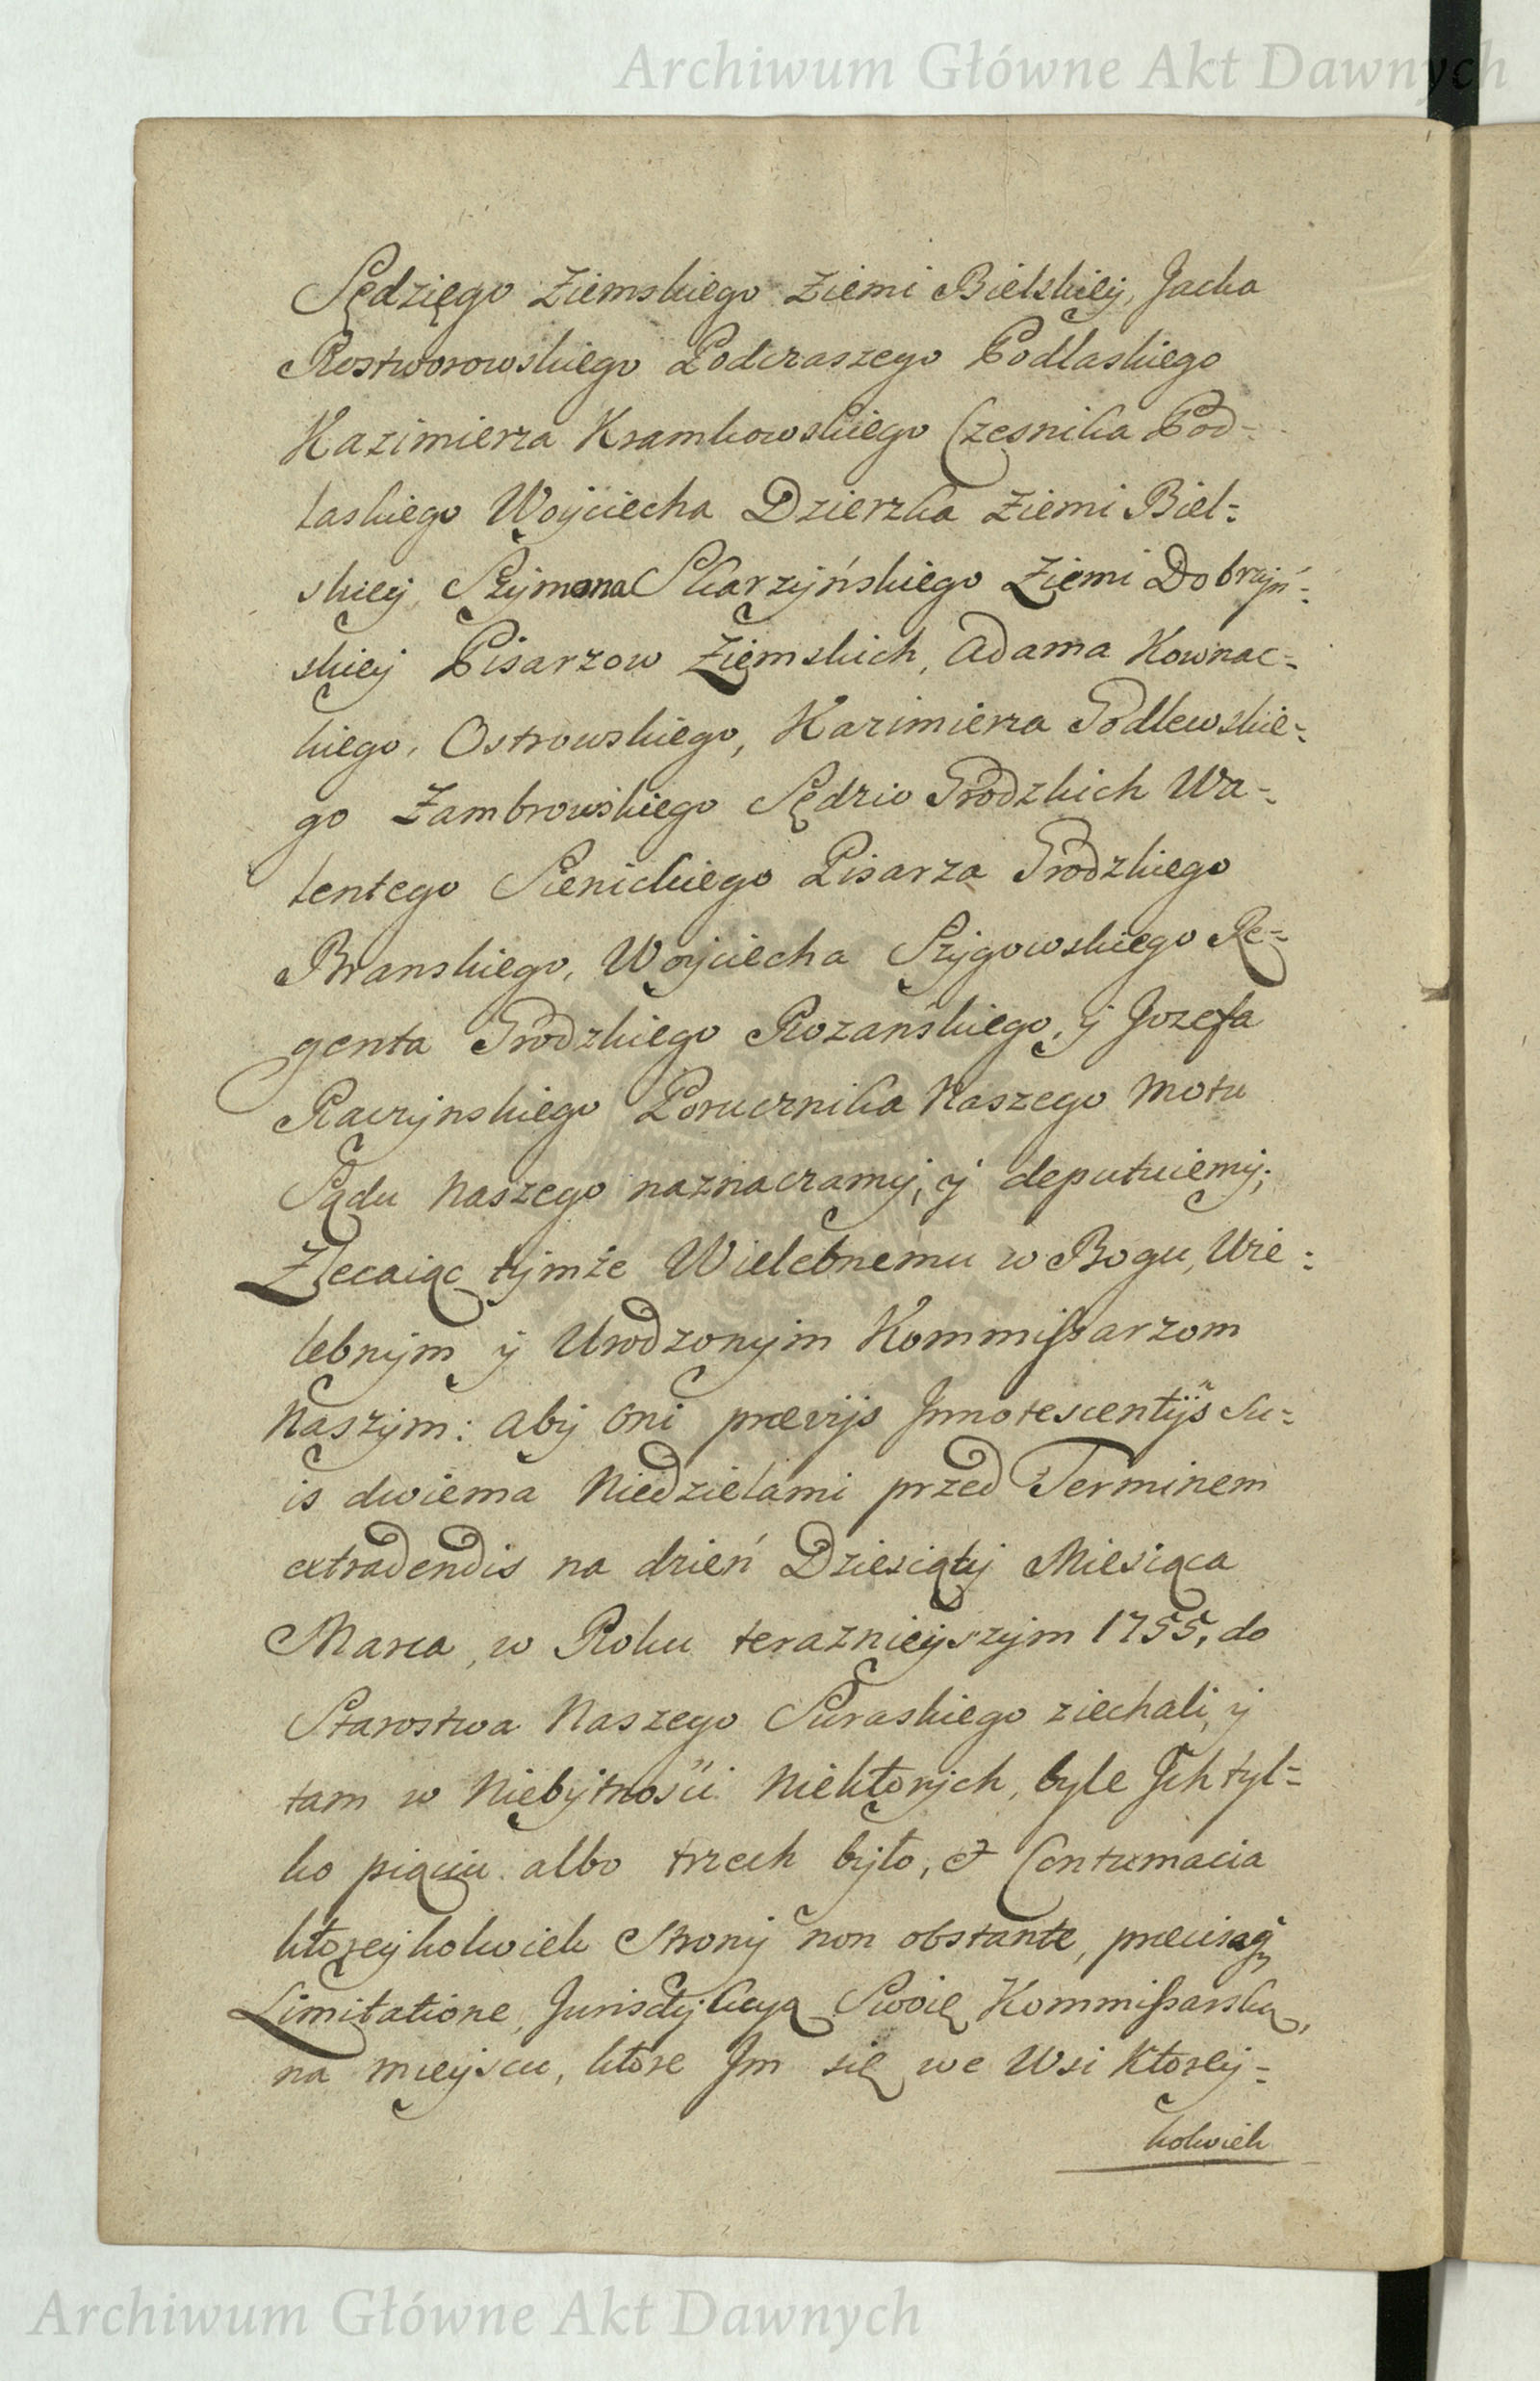 Archiwum Główne Akt Dawnych
Sędzięgo Ziemskiego Ziemi Bielskiey, Jacka
Rostworowskiego Podczaszego Podlaskiego
Kazimierza Kramkowskiego Czesnika Pod=
laskiego Woyciecha Dzierzka Ziemi Biel=
skiey Szymona Skarzyńskiego Ziemi Dobrzyń=
skiey Pisarzow Ziemskich, Adama Kownac=
kiego, Ostrowskiego, Kazimierza Godlewskie=
go Zambrowskiego Sędzio Grodzkich Wa=
lentego Sienickiego Pisarza Grodzkiego
Branskiego, Woyciecha Szygowskiego Re=
genta Grodzkiego Rozanskiego, y Jozefa
Raczynskiego Porucznika Naszego Motu
Sądu Naszego naznaczamy, y deputuiemy;
Zlecaiąc tymże Wielebnemu w Bogu, Wie=
lebnym y Urodzonym Kommissarzom
Naszym: aby Oni prævijs Innotescentÿs su=
is dwiema Niedzielami przed Terminem
extradendis na dzień Dziesiąty Miesiąca
Marca, w Roku terazniejszym 1755, do
Starostwa Naszego Suraskiego ziechali, y
tam w Niebytnosci Niektorych, byle Ich tyl=
ko piąciu albo trzech było, et Contumacia
ktoreykolwiek Strony non obstante, præcisaq;
Limitatione, Jurisdykcyą Swoię Kommissarską,
na mieyscu, ktore Im się we Wsi Ktorey=
kolwiek
Archiwum Główne Akt Dawnych